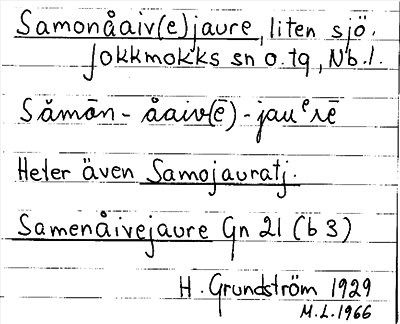 Samonåaiv(e)jaure, liten sjö.
Jokkmokks sn o. tg, Nb.l.
Sǎmān - åaiv(ē) - jauᵉrē
Heter även Samojauratj.
Samenåivejaure Gn 21 (b 3)
H. Grundström 1929
M.L. 1966